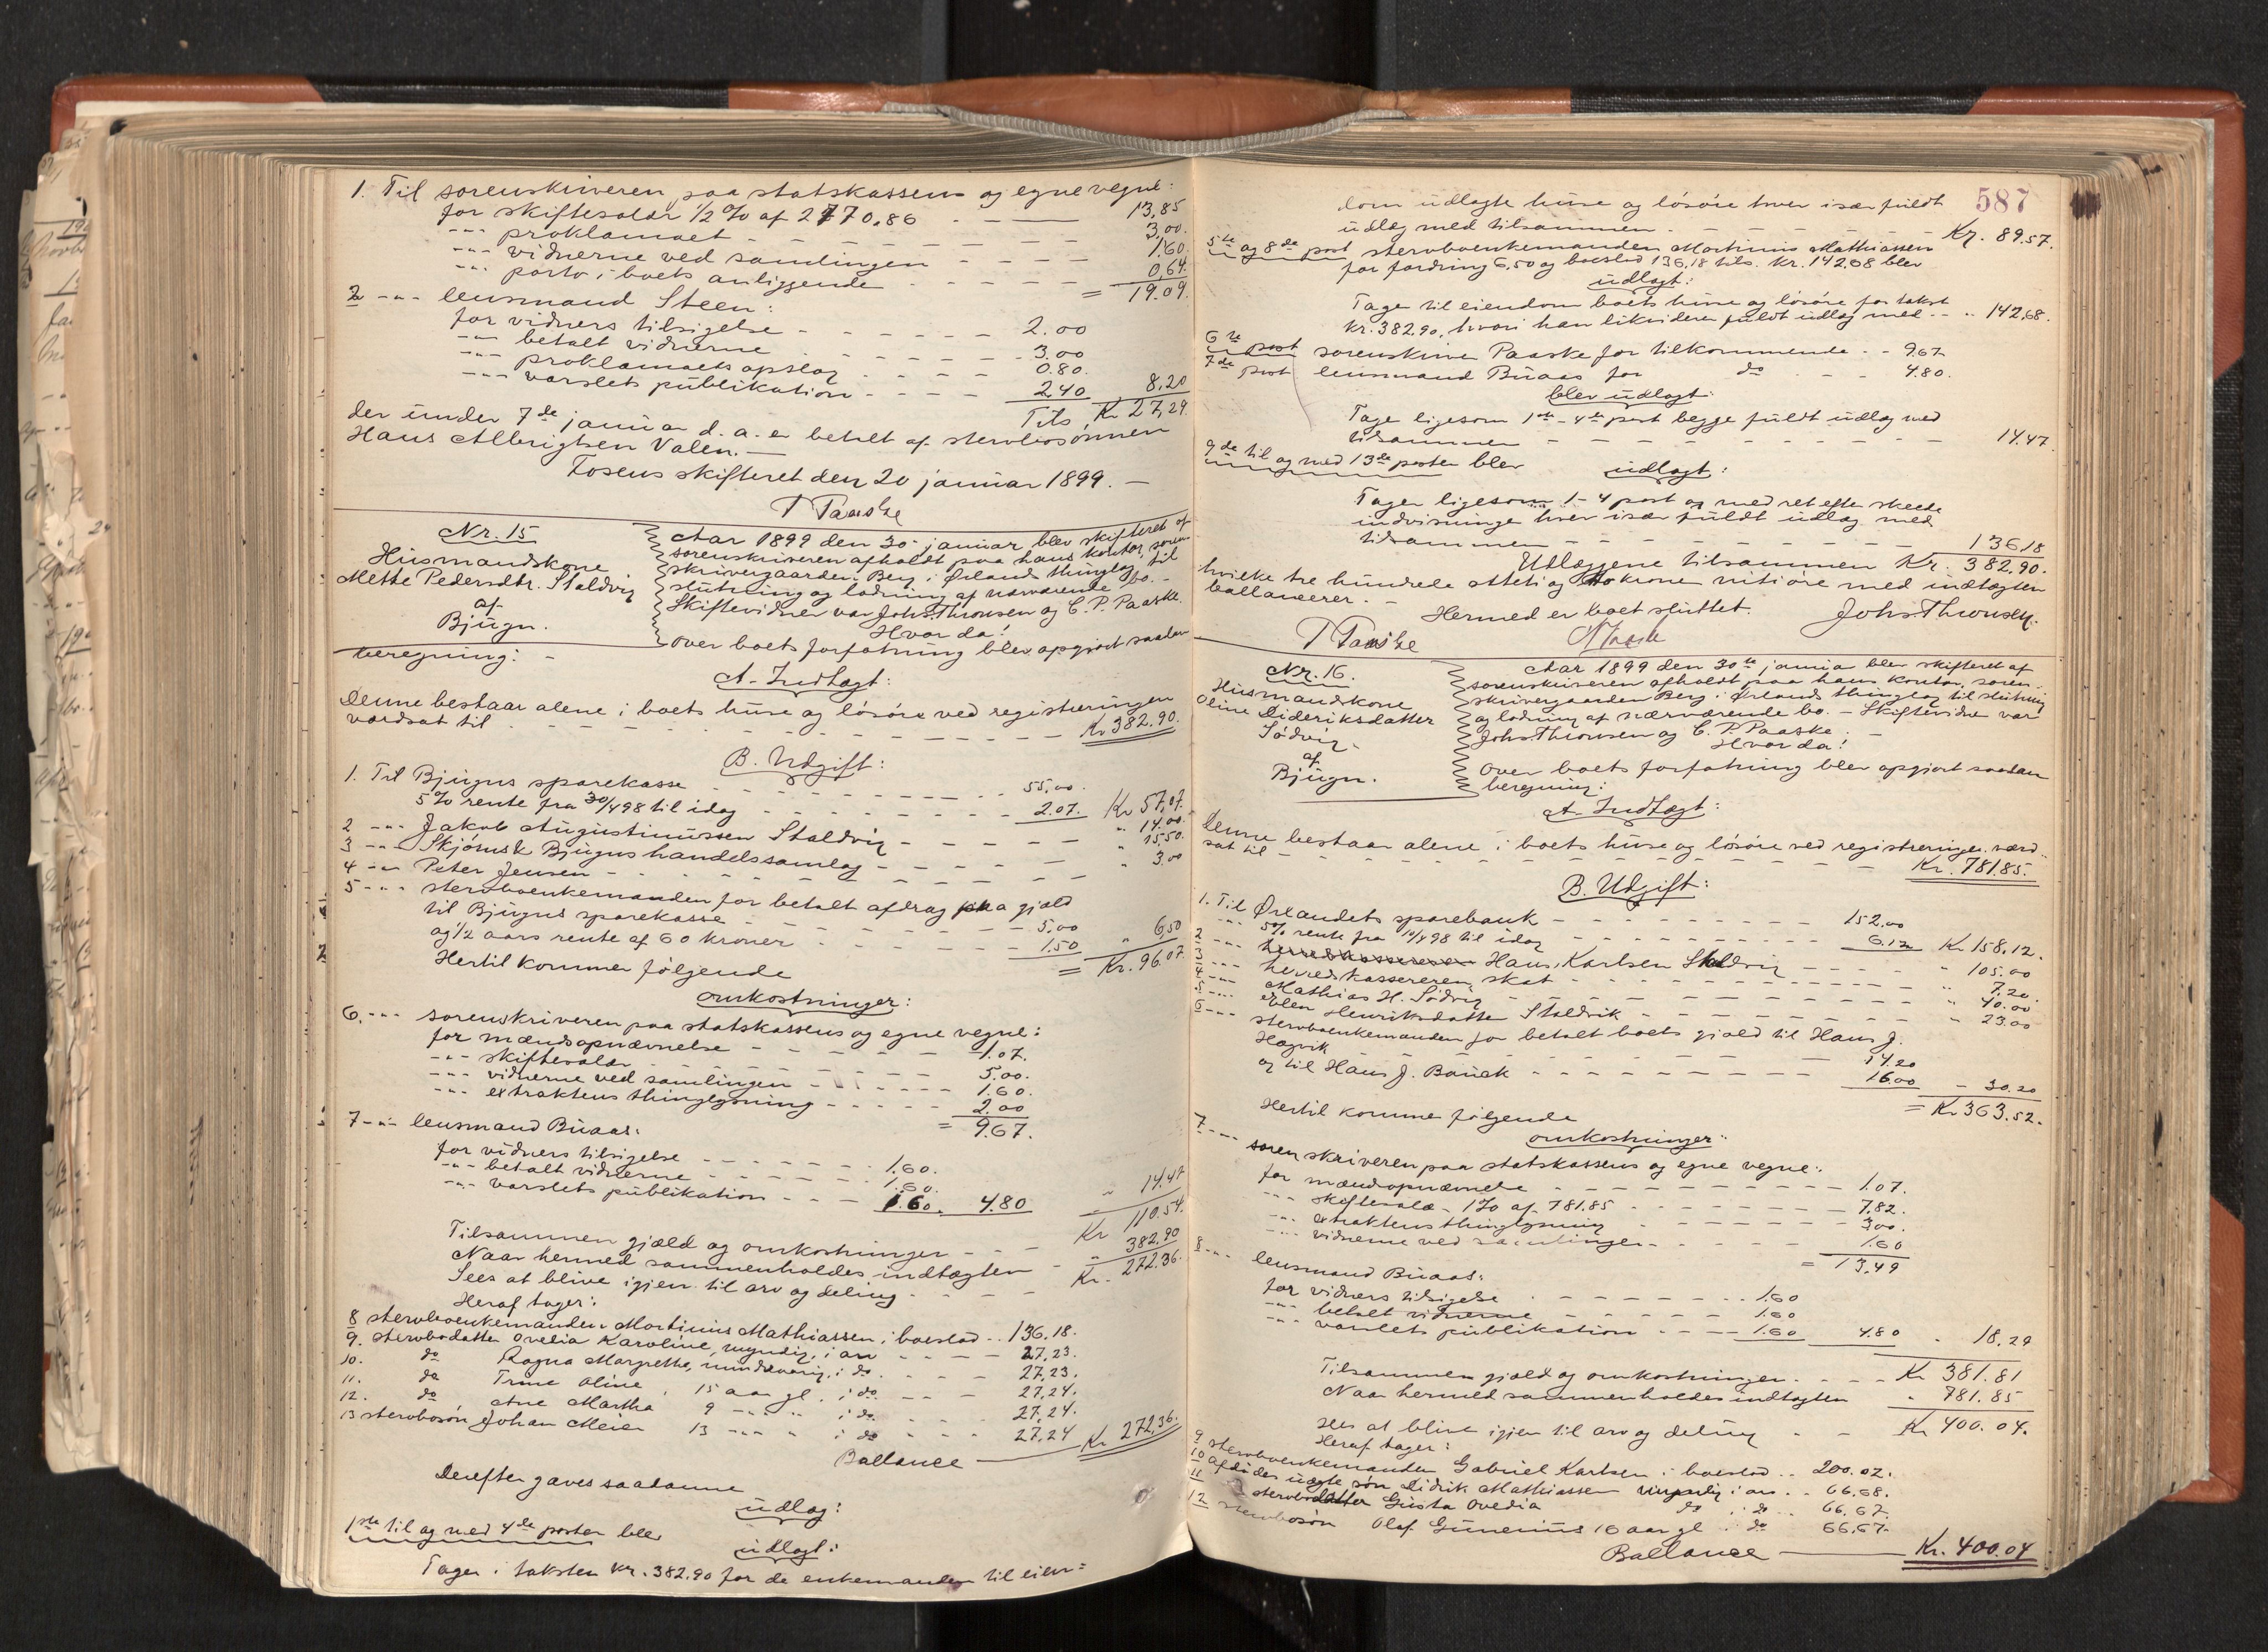 1. Til sorenskriveren paa statskassens og egne vegne:
for skiftesalær 1/2 % af 2770,86 - - 13,85
-"- proklamaet - - - - 3,00.
-"- vidnerne ved samlingen - - - - 1.60.
-"- porto i boets anliggende - - - - 0,64.
= 19.09.
2 -"- lensmand Steen:
for vidners tilsigelse - - - - 2.00
-"- betalt vidnerne - - - - 3.00
-"- proklamaets opslag - - - - 0.80.
-"- varslets publikation - - - - 2,40 8,20
Tils. Kr 27,29.
der under 7de januar d. a. er betalt af stervbosønnen
Hans Albrigtsen Valen. —
Fosens skifteret den 20 januar 1899. —
P Paaske
Nr. 15
Husmandskone
Mette Pedersdtr. Staldvig
af
Bjugn.
Aar 1899 den 30 januar blev skifteret af
sorenskriveren afholdt paa hans kontor, soren-
skrivergaarden Berg i Ørlands thinglag til
slutning og lodning af nærværende bo. -
Skiftevidner var Johs. Thronsen og C. P. Paaske.
Hvor da!
Over boets forfatning blev opgjort saadan
beregning: -
A. Indtægt:
Denne bestaar alene i boets huse og løsøre ved registreringen
værdsat til - - - - Kr 382,90.
B. Udgift:
1. Til Bjugns sparekasse - - - - 55,00.
5 % rente fra 30/4 98 til idag - - - - 2.07. Kr 57,07.
2 -"- Jakob Augustinussen Staldvig - - - - " 14.00.
3 -"- Skjørnsk Bjugns handelssamlag - - - - " 15.50.
4 -"- Peter Jensen - - - - " 3.00
5 -"- stervboenkemanden for betalt afdrag paa gjæld
til Bjugns sparekasse - - - - 5,00
og 1/2 aars rente af 60 kroner - - - - 1.50 " 6,50
= Kr. 96.07.
Hertil kommer følgende
omkostninger:
6. -"- sorenskriveren paa statskassens og egne vegne:
for mændsopnævnelse - - - - 1.07.
-"- skiftesalær - - - - 5.00.
-"- vidnerne ved samlingen - - - - 1.60.
-"- extraktens thinglysning - - - - 2.00
= 9.67.
7 -"- lensmand Buaas:
for vidners tilsigelse - - - - 1.60.
-"- betalt vidnerne - - - - 1.60.
-"- varslets publikation - - - 1.60. 4.80 " 14.47
Tilsammen gjæld og omkostninger - - - Kr 110.54.
Naar hermed sammenholdes indtægten - " 382.90
Sees at blive igjen til arv og deling - - - Kr. 272.36.
Heraf tager:
8 stervboenkemanden Martinus Mathiassen i boeslod - - 136.18.
9. stervbodatter Ovelia Karoline, myndig, i arv - - - 27,23.
10. do Ragna Margrethe, mindreårig, i do - - - 27,23.
11. do Trine Oline, 15 aar gl. i do - - - 27,24.
12. do Ane Martha 9 -"- " i do - - - 27,24.
13 stervbosøn Johan Meier 13 -"- " i do - - - 27,24 Kr 272,36.
Ballance —
Derefter gaves saadanne
udlæg:
1ste til og med 4de posten blev
udlagt:
Tager i taksten kr. 382.90 for de enkemanden til eien-
587
dom udlagte huse og løsøre hver især fuldt
udlæg med tilsammen - - - - Kr. 89.57.
5te og 8de post stervboenkemanden Martinus Mathiassen
for fordring 6,50 og boeslod 136,18 tils. kr. 142,68 blev
udlagt:
Tager til eiendom boets huse og løsøre for takst
kr. 382.90, hvori han likviderer fuldt udlæg med - - " 142,68.
6te post sorenskriver Paaske for tilkommende - - 9.67
7de post lensmand Buaas for do - - - 4.80.
blev udlagt:
Tager ligesom 1ste - 4de post begge fuldt udlæg med
tilsammen - - - - 14.47
9de til og med 13de posten blev
udlagt:
Tager ligesom 1 - 4 post og med ret efter skeede
indvisninger hver især fuldt udlæg med
tilsammen - - - - 136.18
Udlæggene tilsammen Kr. 382.90.
hvilke tre hundrede otteti og to kroner nitiøre med indtægten
ballancerer. -
Hermed er boet sluttet.
P Paaske
C Paaske
Johs. Thronsen.
Nr. 16.
Husmandskone
Oline Dideriksdatter
Sødvig
af
Bjugn.
Aar 1899 den 30te januar blev skifteret af
sorenskriveren afholdt paa hans kontor, soren-
skrivergaarden Berg i Ørlands thinglag til slutning
og lodning af nærværende bo. - Skiftevidner var
Johs. Thronsen og C. P. Paaske. -
Hvor da!
Over boets forfatning blev opgjort saadan
beregning:
A. Indtægt:
Denne bestaar alene i boets huse og løsøre ved registreringen værd-
sat til - - - - Kr. 781.85.
B. Udgift:
1. Til Ørlandets sparebank - - - - 152.00
-"- 5 % rente fra 10/4 98 til idag - - - - 6.12 Kr 158,12.
2 -"- herredskassereren Hans Karlsen Staldvig - - - - " 105.00
3 -"- herredskassereren, skat - - - - " 7.20.
4 -"- Mathias H. Sødvig - - - - " 40.00
5 -"- Elen Henriksdatter Staldvik - - - - " 23.00
6 -"- stervboenkemanden for betalt boets gjæld til Hans J.
Høgvik - - - - 14.20
og til Hans J. Bauck - - - - 16.00 - 30.20
= Kr 363.52.
Hertil kommer følgende
omkostninger:
7 -"- sorenskriveren paa statskassens og egne vegne:
for mændsopnævnelse - - - - 1.07.
-"- skiftesalær - 1 % af 781.85 - - - - 7.82.
-"- extraktens thinglysning - - - - 3.00.
-"- vidnerne ved samlingen - - - - 1.60
= 13.49
8 -"- lensmand Buaas:
for vidners tilsigelse - - - - 1.60
-"- betalt vidnerne - - - - 1.60
-"- varslets publikation - - - - 1.60 4.80 " 18.29
Tilsammen gjæld og omkostninger - - - - Kr 381.81
Naar hermed sammenholdes indtægten " 781.85
sees at blive igjen til arv og deling - - Kr 400.04.
Heraf tager:
9 stervboenkemanden Gabriel Karlsen i boeslod - - 200.02.
10 afdødes uægte søn Didrik Mathiassen myndig i arv - - 66.68.
11 stervbodatter Gusta Ovedia do i do - - 66.67.
12 stervbosøn Olaf Gunerius 16 aar gl. i do 66.67.
Ballance — Kr. 400.04